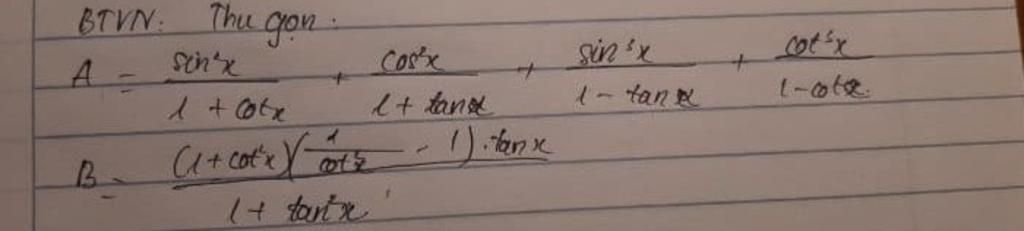 BTVN: Thu gọn:
A = sin²x / (1 + cotx) + cos²x / (1 + tanx) + sin²x / (1 - tanx) + cot²x / (1 - cotx)
B = (1 + cot²x)(1 / cot²x - 1).tanx / (1 + tan²x)